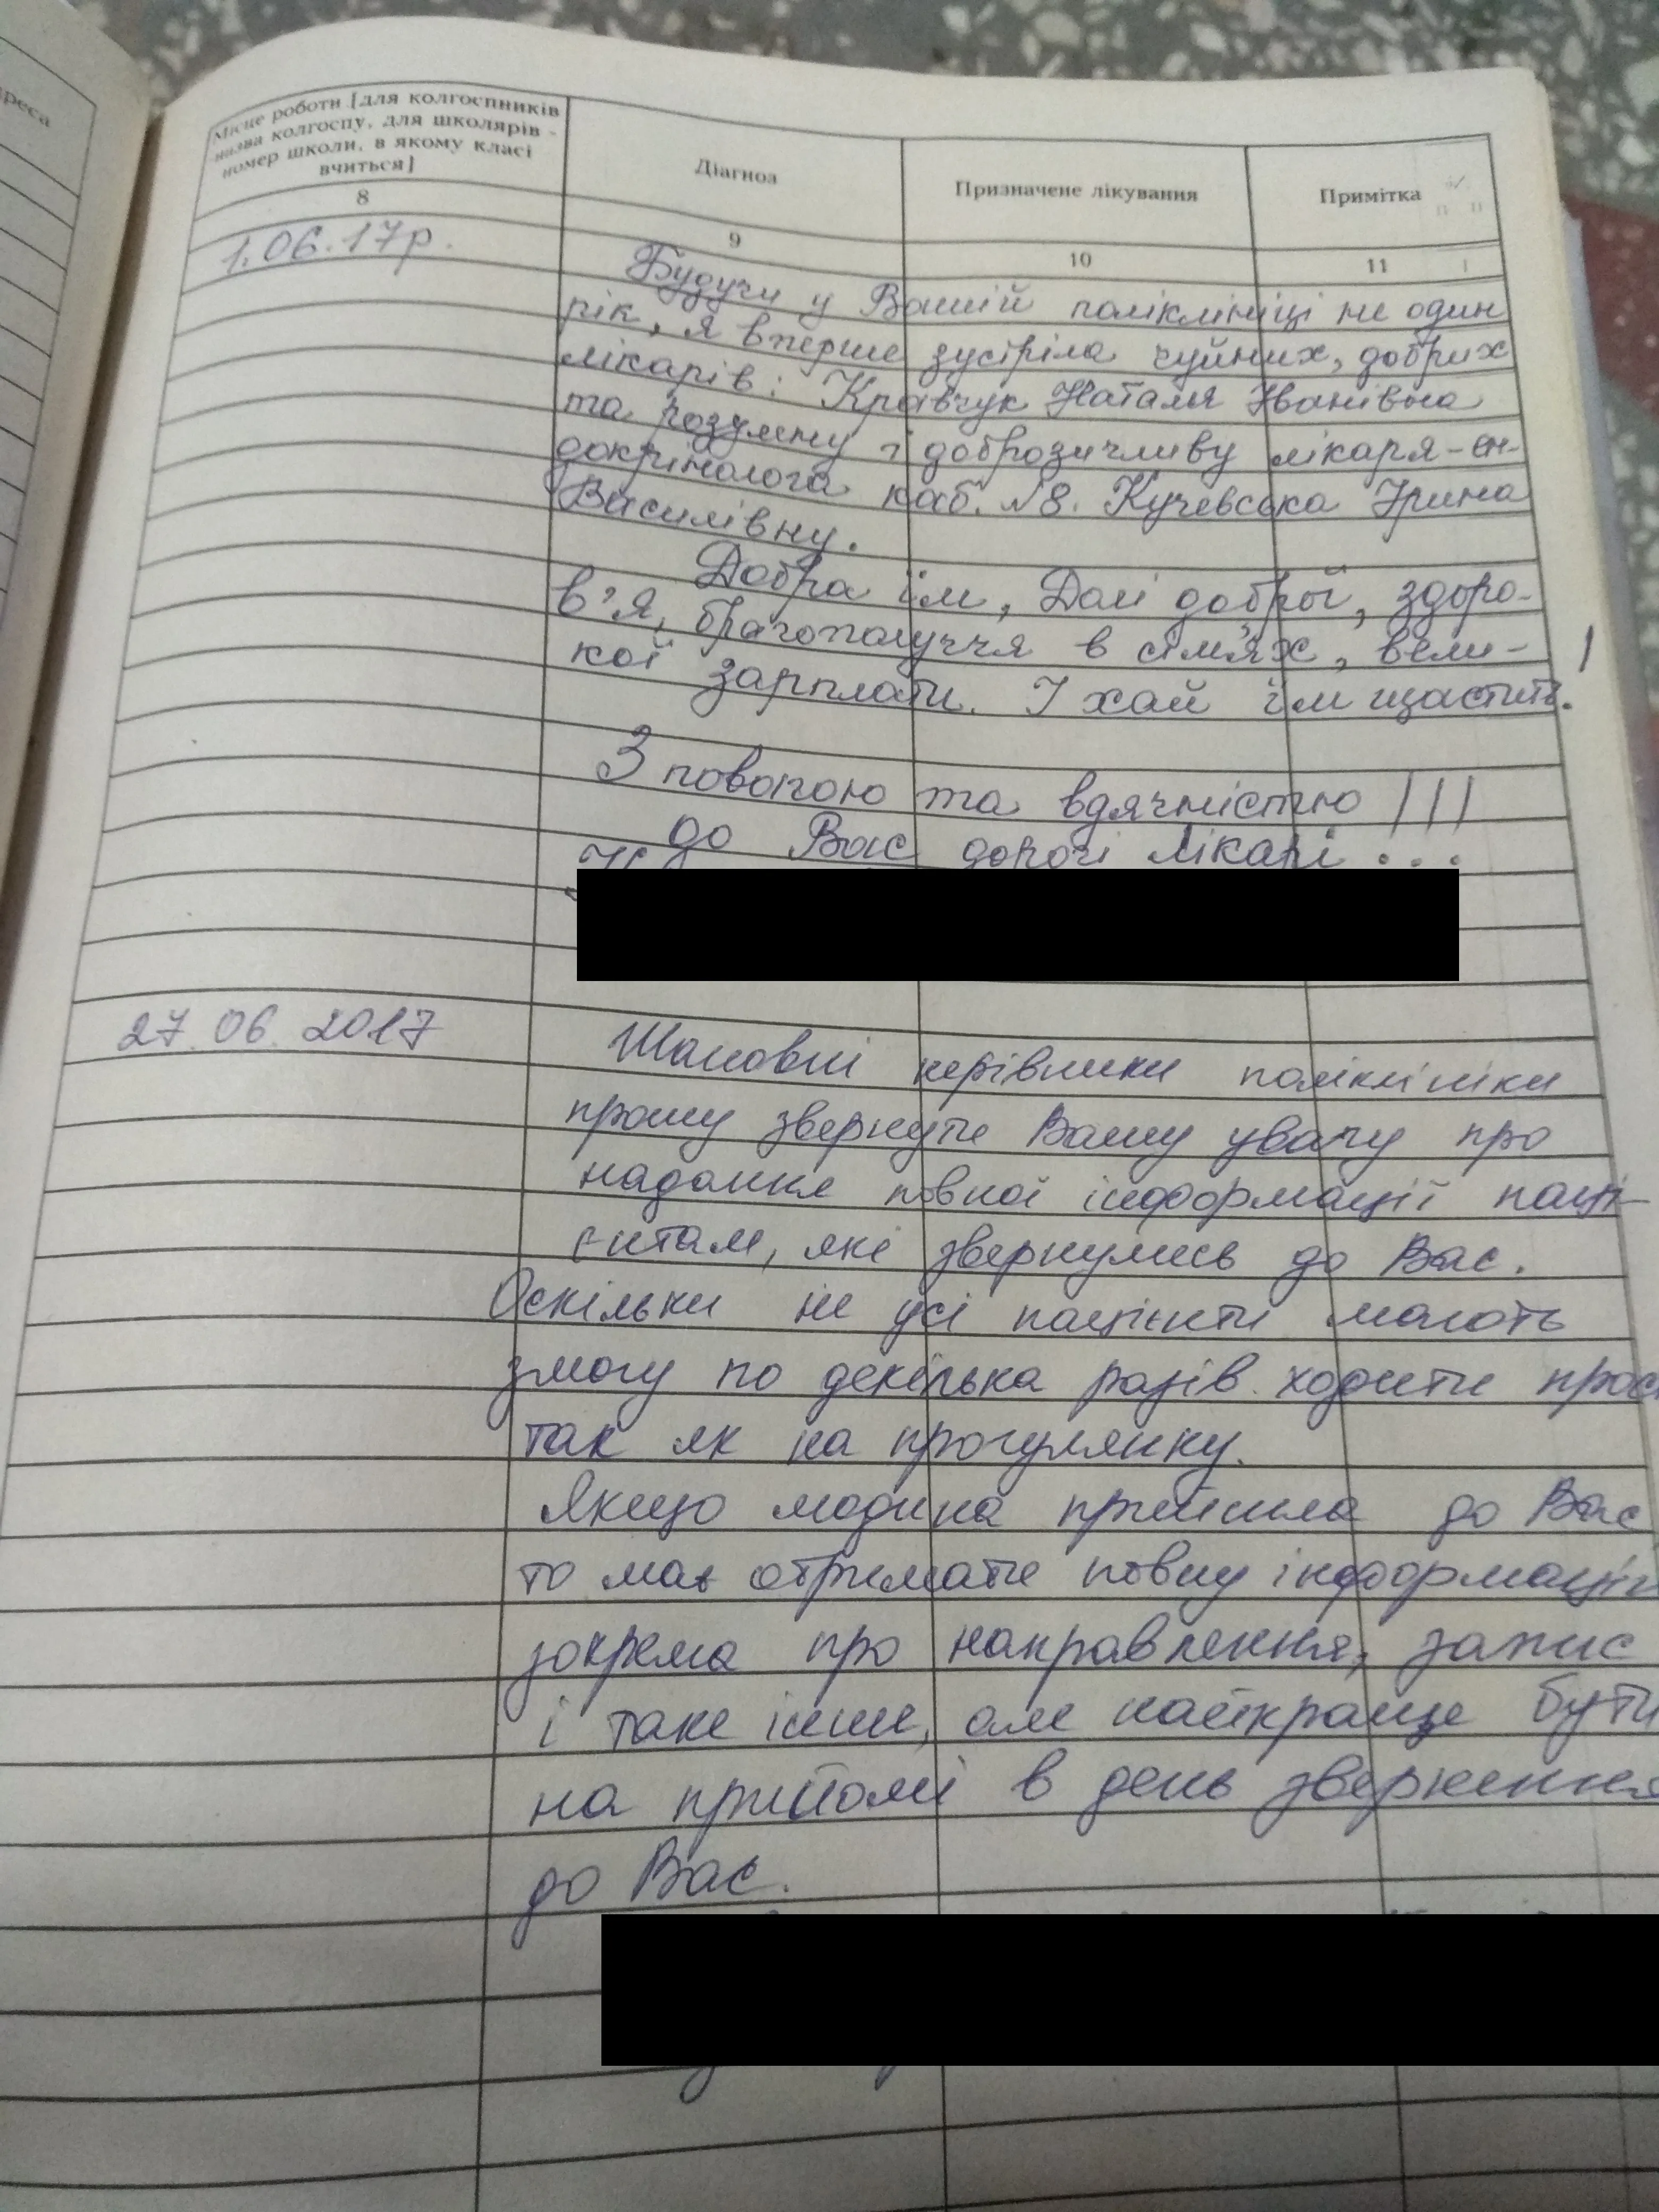 реса
Місце роботи [для колгоспників
назва колгоспу, для школярів -
номер школи, в якому класі
вчиться]
Діагноз
Призначене лікування
Примітка
8
9
10
11
1.06.17р.
Будучи у Вашій поліклініці не один
рік, я вперше зустріла чуйних, добрих
лікарів: Кравчук Наталя Іванівна
та розумну і доброзичливу лікаря-ен-
докрінолога каб. №8. Кучевська Ірина
Василівну.
Добра їм, Долі доброї, здоро-
в'я, благополуччя в сім'ях, вели-
кої зарплати. І хай їм щастить!
З повагою та вдячністю!!!
до Вас дорогі лікарі...
27.06.2017
Шановні керівники поліклініки
прошу звернути Вашу увагу про
надання повної інформації паці-
єнтам, які звернулись до Вас.
Оскільки не усі пацієнти мають
змогу по декілька разів ходити прос
так як на прогулянку.
Якщо людина прийшла до Вас
то має отримати повну інформацію
зокрема про направлення, запис
і таке інше, але найкраще бути
на прийомі в день звернення
до Вас.